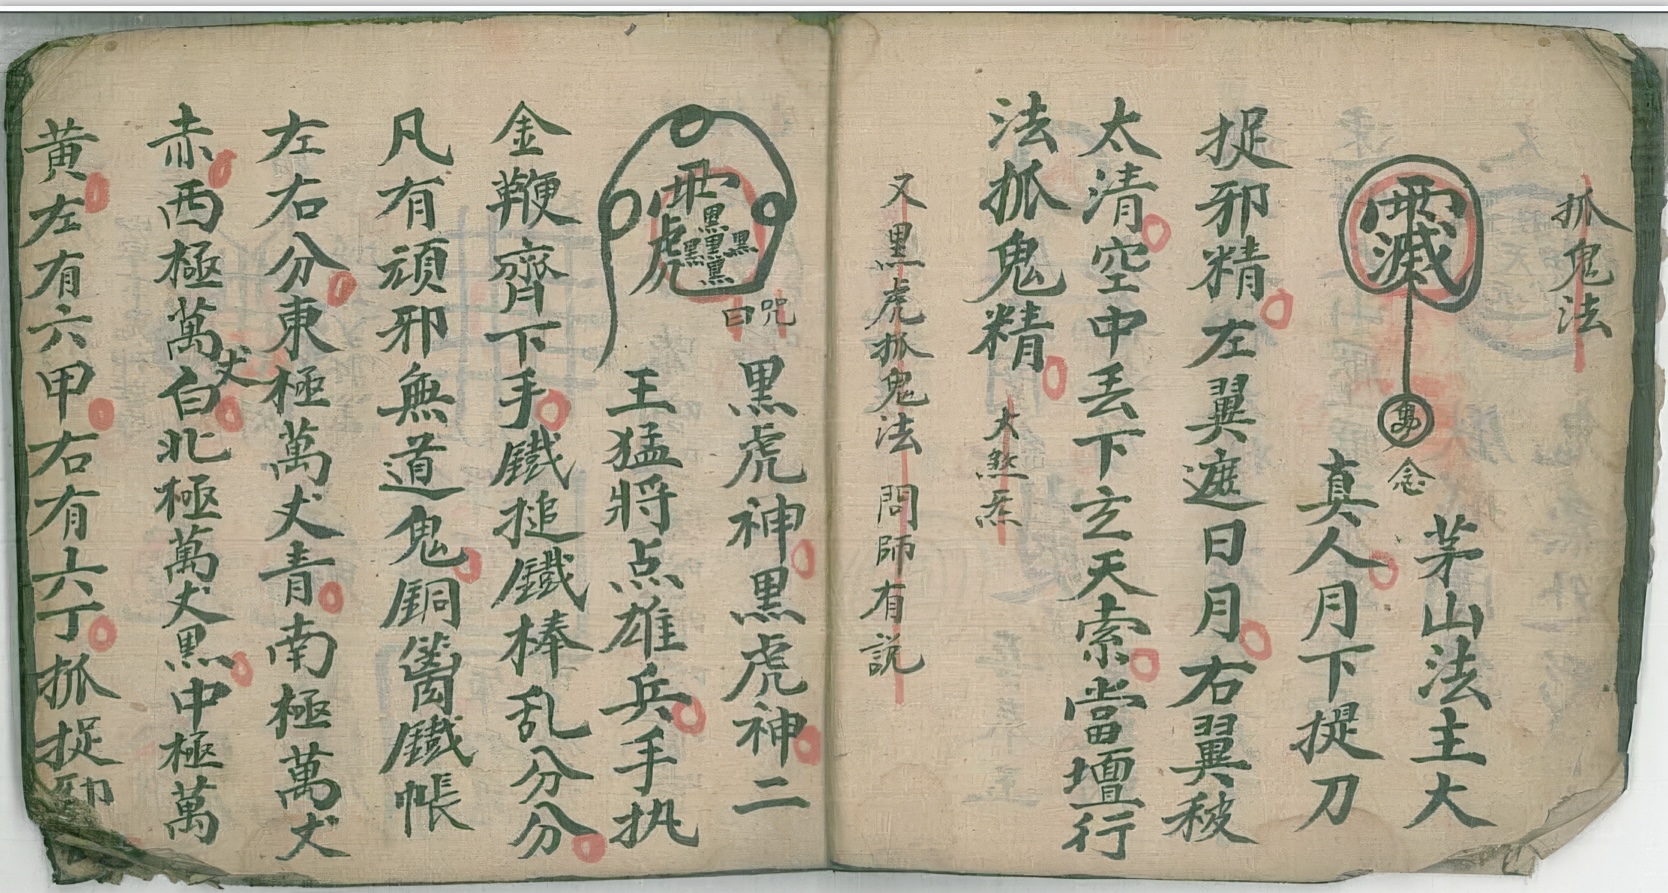 抓鬼法
念
茅山法主大
真人月下提刀
捉邪精左翼遮日月右翼稜
太清空中丢下玄天索當壇行
法抓鬼精 大煞炁
又黑虎抓鬼法 問師有説
虎黑黑黑黑黑
咒曰
黑虎神黑虎神二
王猛將点雄兵手执
金鞭齊下手鐵搥鐵棒乱分分
凡有頑邪無道鬼銅箍鐵帳
左右分東極萬丈青南極萬丈
赤西極萬丈白北極萬丈黑中極萬
黄左有六甲右有六丁抓捉